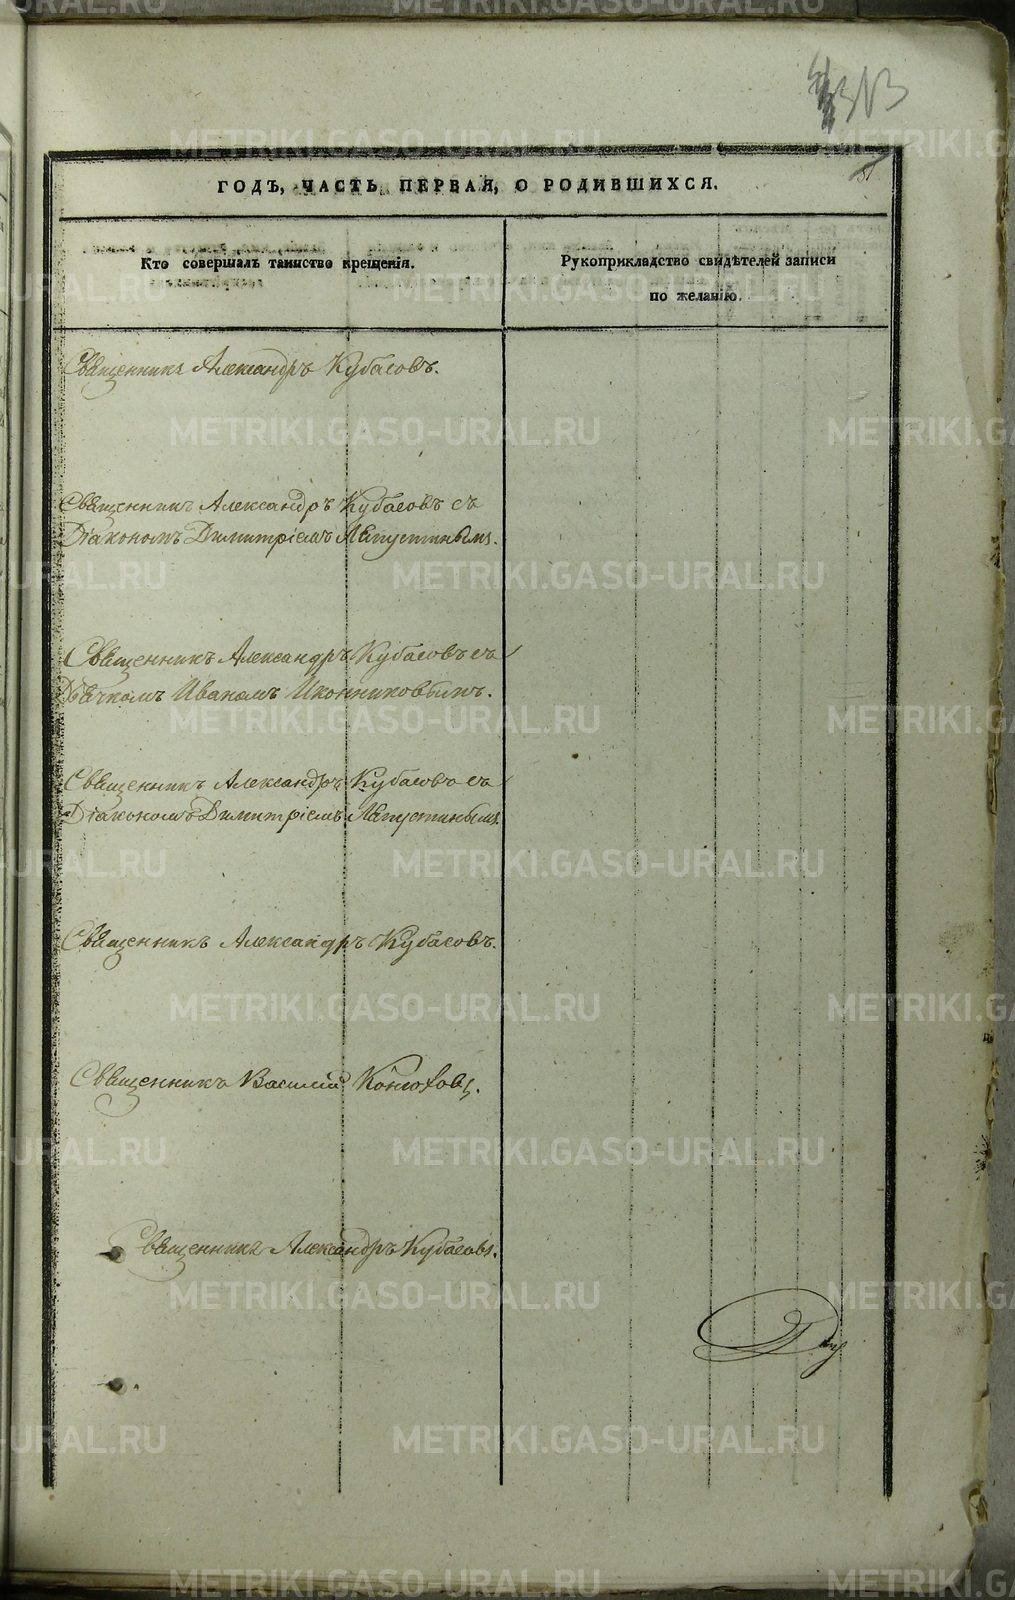 313
ГОДЪ, ЧАСТЬ ПЕРВАЯ, О РОДИВШИХСЯ.
Кто совершалъ таинство крещенія.
Рукоприкладство свидѣтелей записи
по желанію.
Священникъ Александръ Кубасовъ.
Священникъ Александръ Кубасовъ съ
Діакономъ Димитріемъ
Священникъ Александръ Кубасовъ съ
Дьячкомъ Иваномъ Иконниковымъ.
Священникъ Александръ Кубасовъ съ
Діакономъ Димитріемъ
Священникъ Александръ Кубасовъ.
Священникъ Василій Конюховъ.
Священникъ Александръ Кубасовъ.
METRIKI.GASO-URAL.RU